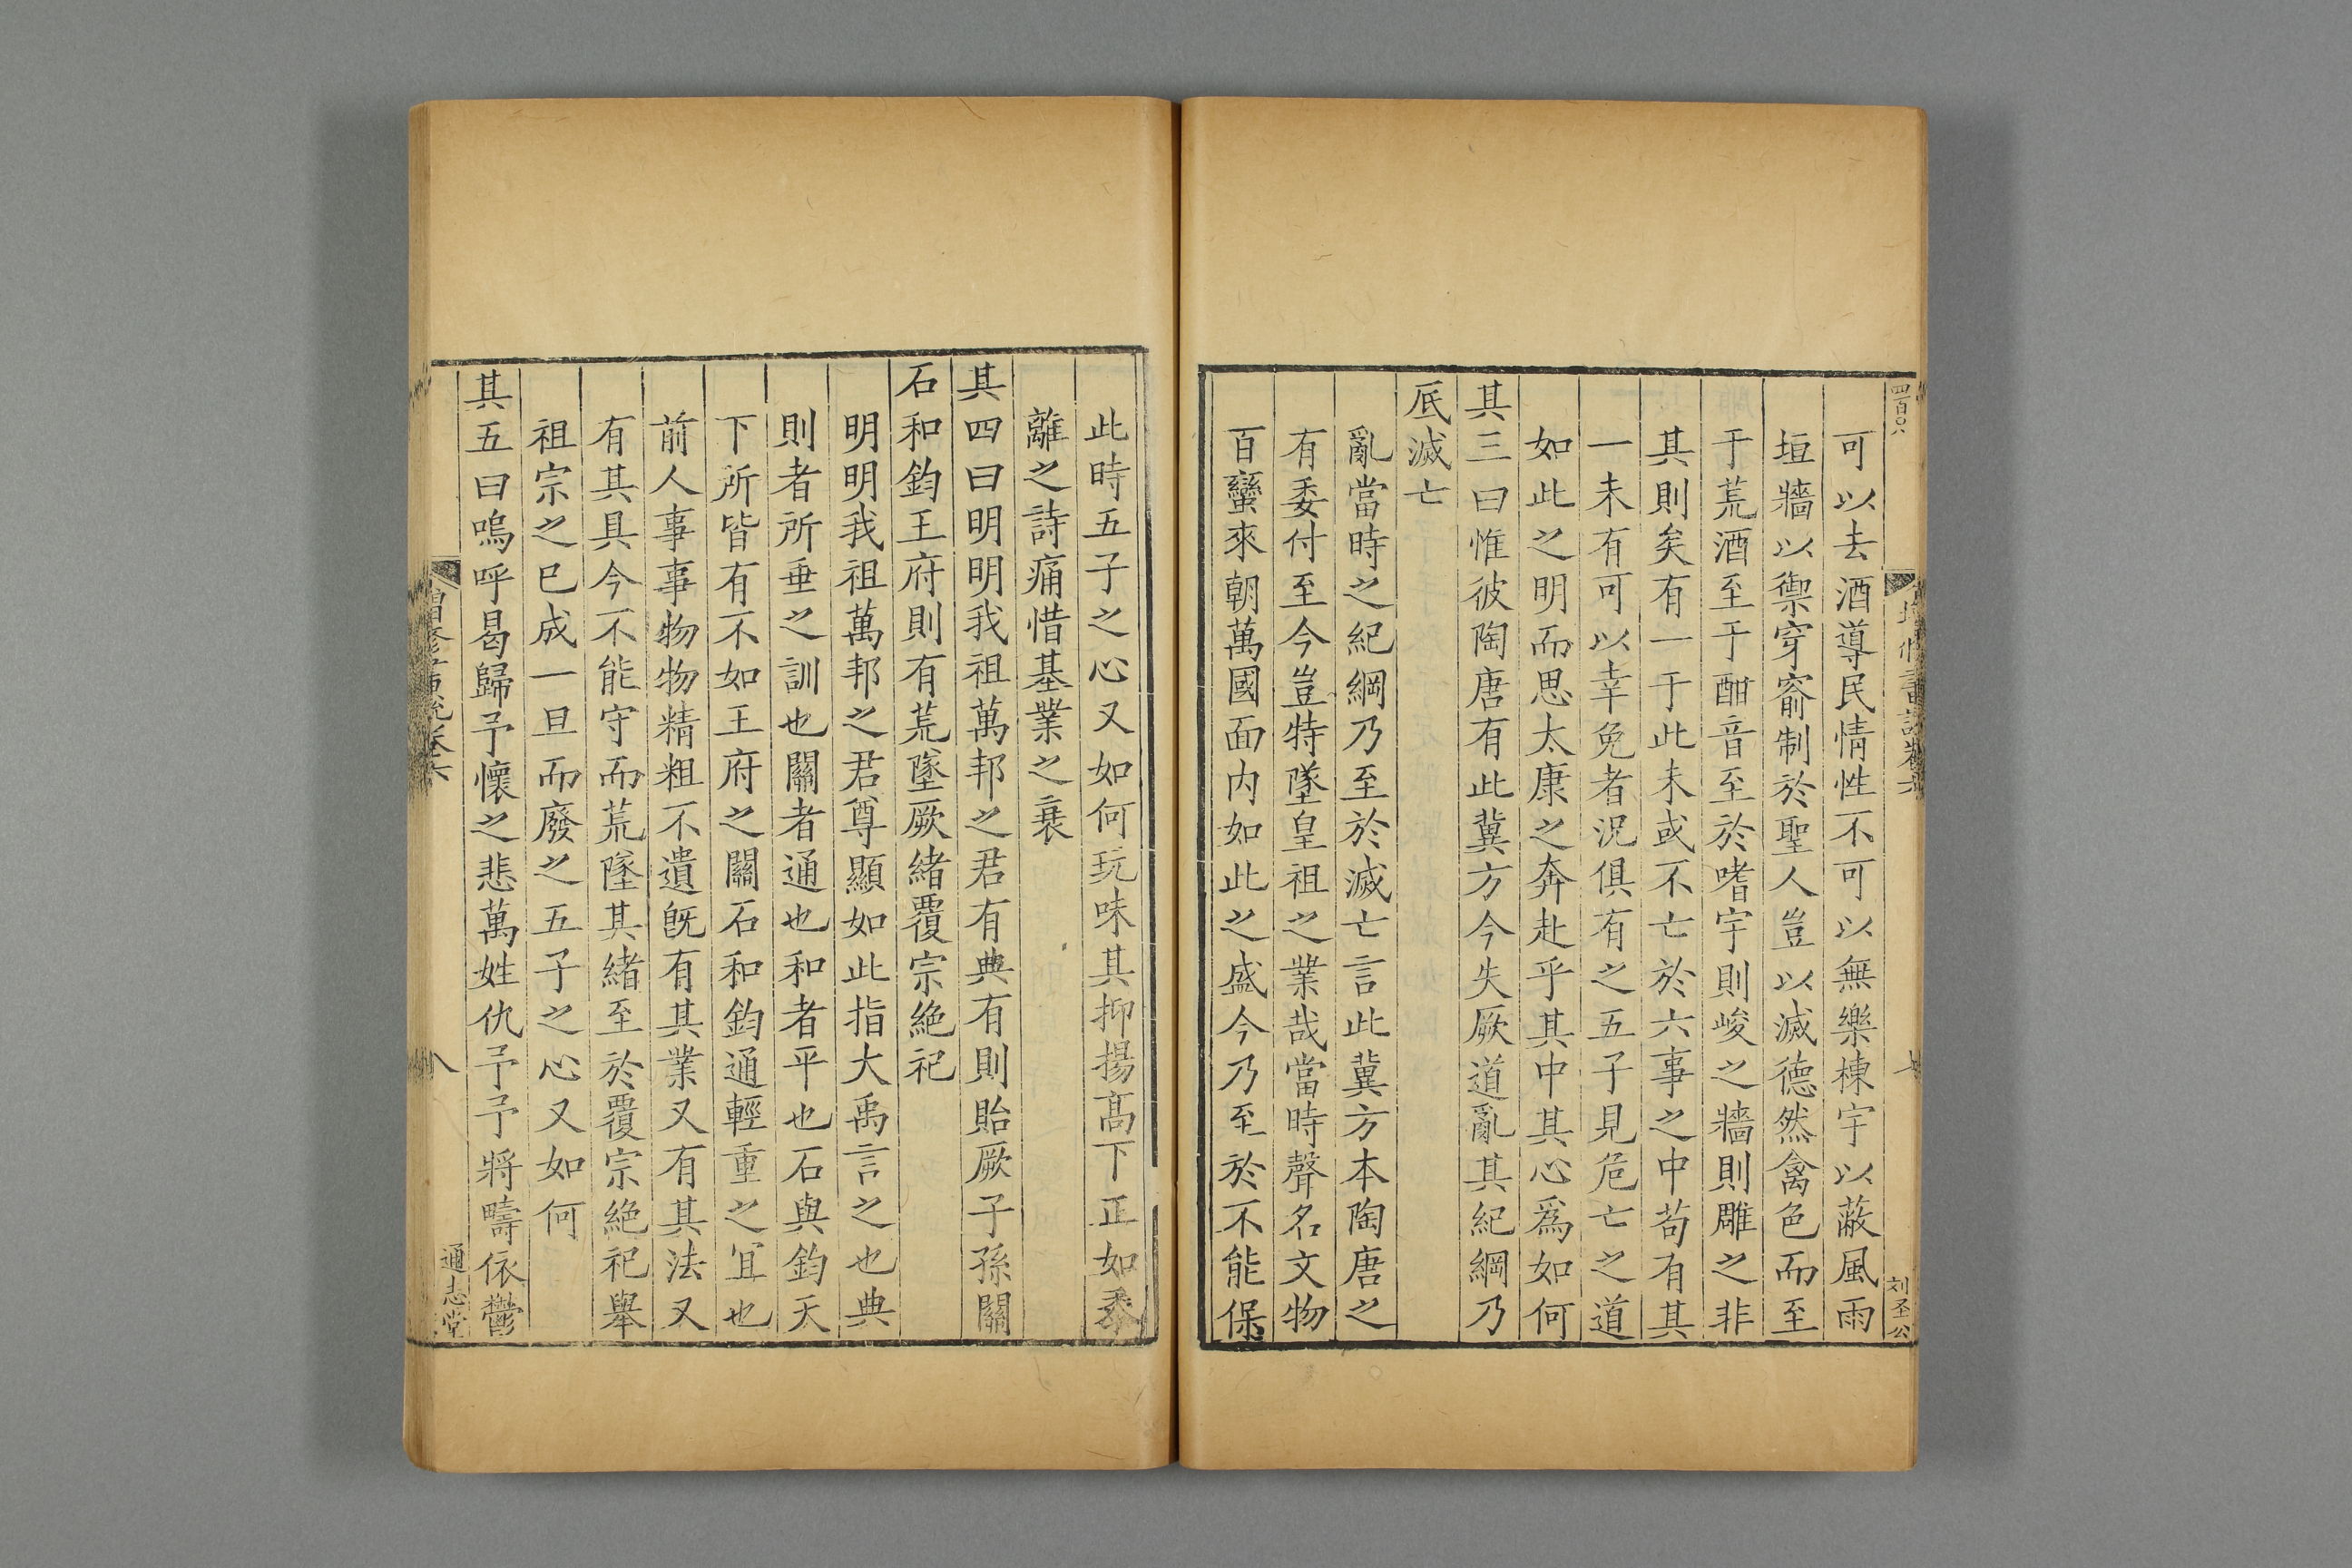 四百〇八
可以去酒導民情性不可以無樂棟宇以蔽風雨
垣牆以禦穿窬制於聖人豈以滅德然禽色而至
于荒酒至于酣音至於嗜宇則峻之牆則雕之非
其則矣有一于此未或不亡於六事之中苟有其
一未有可以幸免者況俱有之五子見危亡之道
如此之明而思太康之奔赴乎其中其心爲如何
其三曰惟彼陶唐有此冀方今失厥道亂其紀綱乃
厎滅亡
亂當時之紀綱乃至於滅亡言此冀方本陶唐之
有委付至今豈特墜皇祖之業哉當時聲名文物
百蠻來朝萬國面内如此之盛今乃至於不能保
刘圣公
此時五子之心又如何玩味其抑揚髙下正如黍
離之詩痛惜基業之衰
其四曰明明我祖萬邦之君有典有則貽厥子孫關
石和鈞王府則有荒墜厥緒覆宗絶祀
明明我祖萬邦之君尊顯如此指大禹言之也典
則者所垂之訓也關者通也和者平也石與鈞天
下所皆有不如王府之關石和鈞通輕重之冝也
前人事事物物精粗不遺旣有其業又有其法又
有其具今不能守而荒墜其緒至於覆宗絶祀舉
祖宗之已成一旦而廢之五子之心又如何
其五曰嗚呼曷歸予懷之悲萬姓仇予予將疇依鬱
八
通志堂